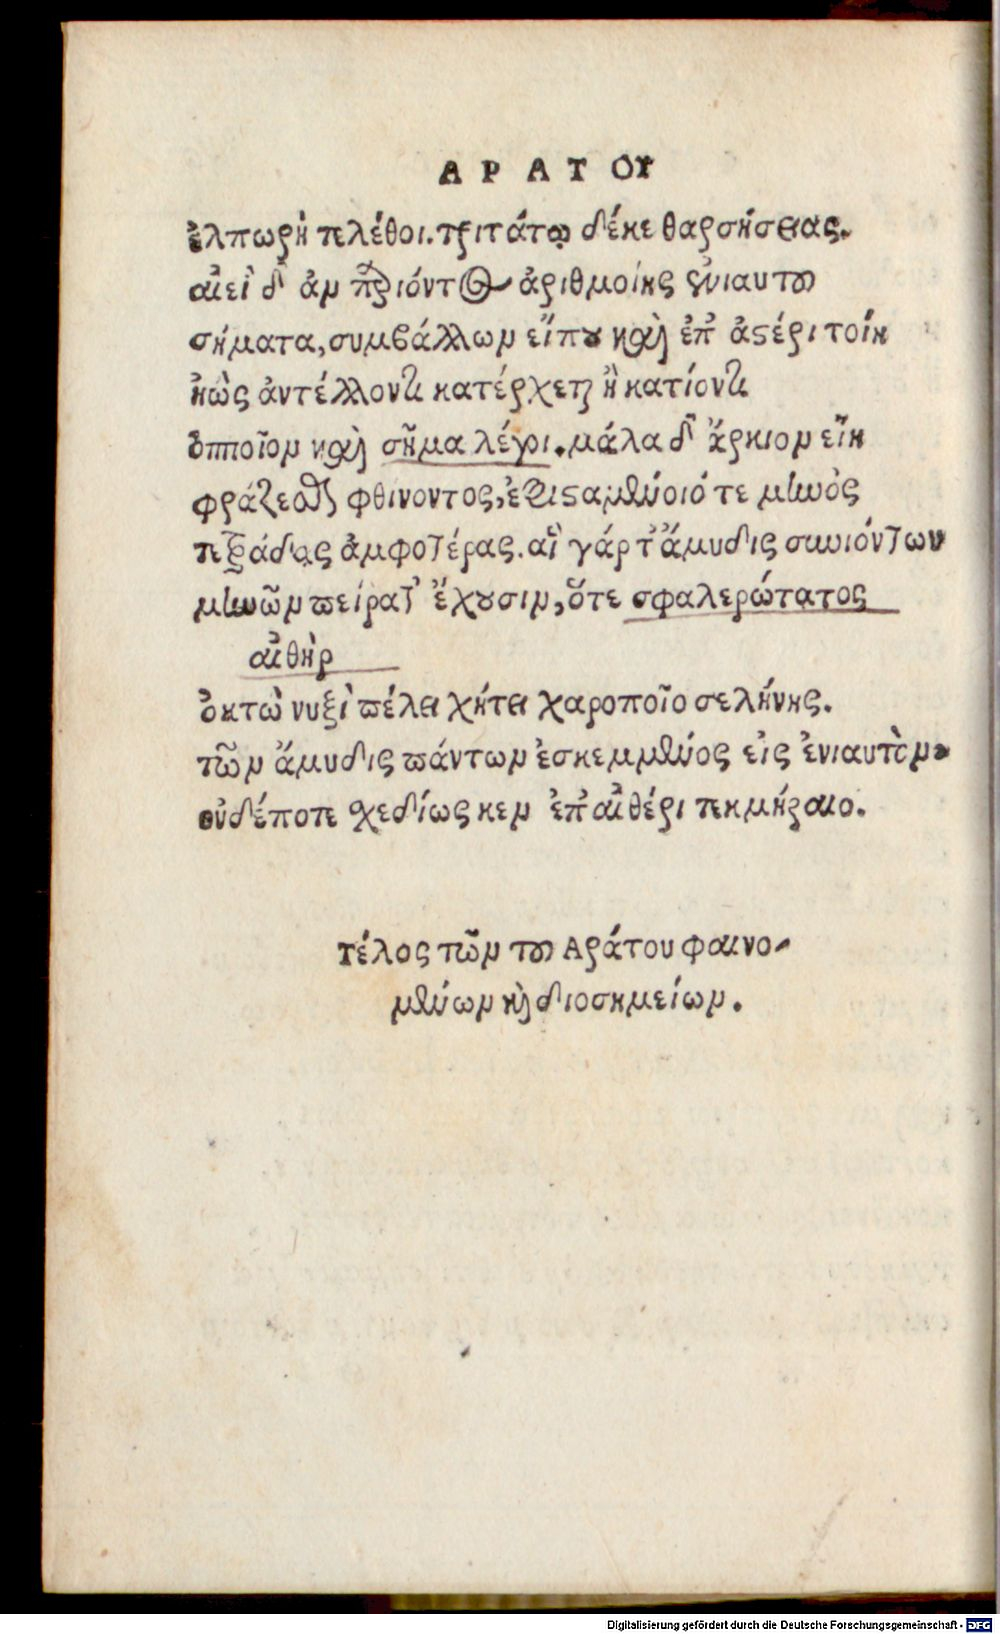 ΑΡΑΤΟΥ
ἐλπωρὴ πελέθοι. τριτάτῳ δέκε θαρσήσειας.
αἰεὶ δ' ἂν παριόντος ἀριθμοίης ἐνιαυτοῦ
σήματα, συμβάλλων εἴπου καὶ ἐπ' ἀστέρι τοίη
ἠὼς ἀντέλλοντι κατέρχεται ἢ κατιόντι
ὁπποῖον καὶ σῆμα λέγοι. μάλα δ' ἄρκιον εἴη
φράζεσθαι φθίνοντος, ἐφισταμένοιό τε μηνὸς
τετράδας ἀμφοτέρας. αἳ γάρ τ' ἄμυδις συνιόντων
μηνῶν πείρατ' ἔχουσιν, ὅτε σφαλερώτατος
αἰθὴρ
ὀκτὼ νυξὶ πέλει χήτει χαροποῖο σελήνης.
τῶν ἄμυδις πάντων ἐσκεμμένος εἰς ἐνιαυτὸν
οὐδέποτε σχεδίως κεν ἐπ' αἰθέρι τεκμήραιο.
Τέλος τῶν τοῦ Ἀράτου φαινο-
μένων καὶ διοσημείων.
Digitalisierung gefördert durch die Deutsche Forschungsgemeinschaft - DFG